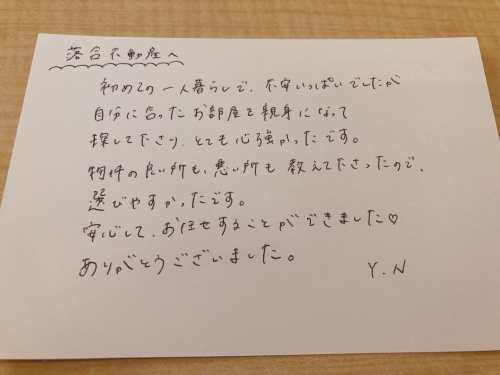 落合不動産へ
初めての一人暮らしで、不安いっぱいでしたが
自分に合ったお部屋を親身になって
探して下さり、とても心強かったです。
物件の良い所も、悪い所も教えて下さったので、
選びやすかったです。
安心して、お任せすることができました♡
ありがとうございました。
Y.N